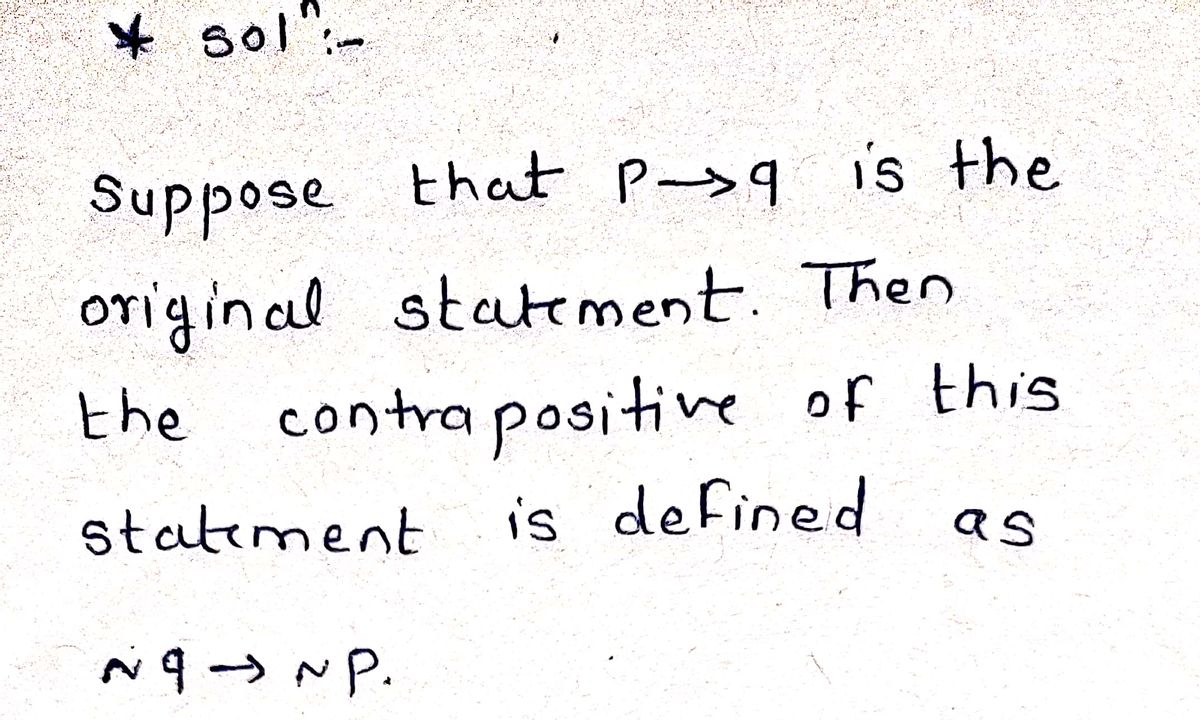 * solⁿ:-
Suppose that P→q is the
original statement. Then
the contrapositive of this
statement is defined as
~q → ~P.